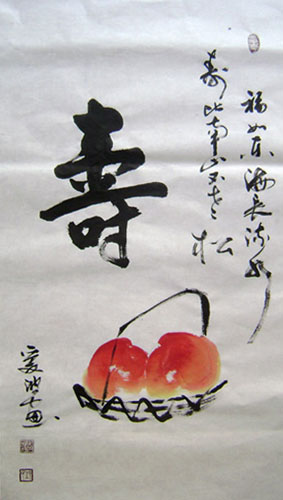 福如东海长流水
寿比南山不老
松
壽